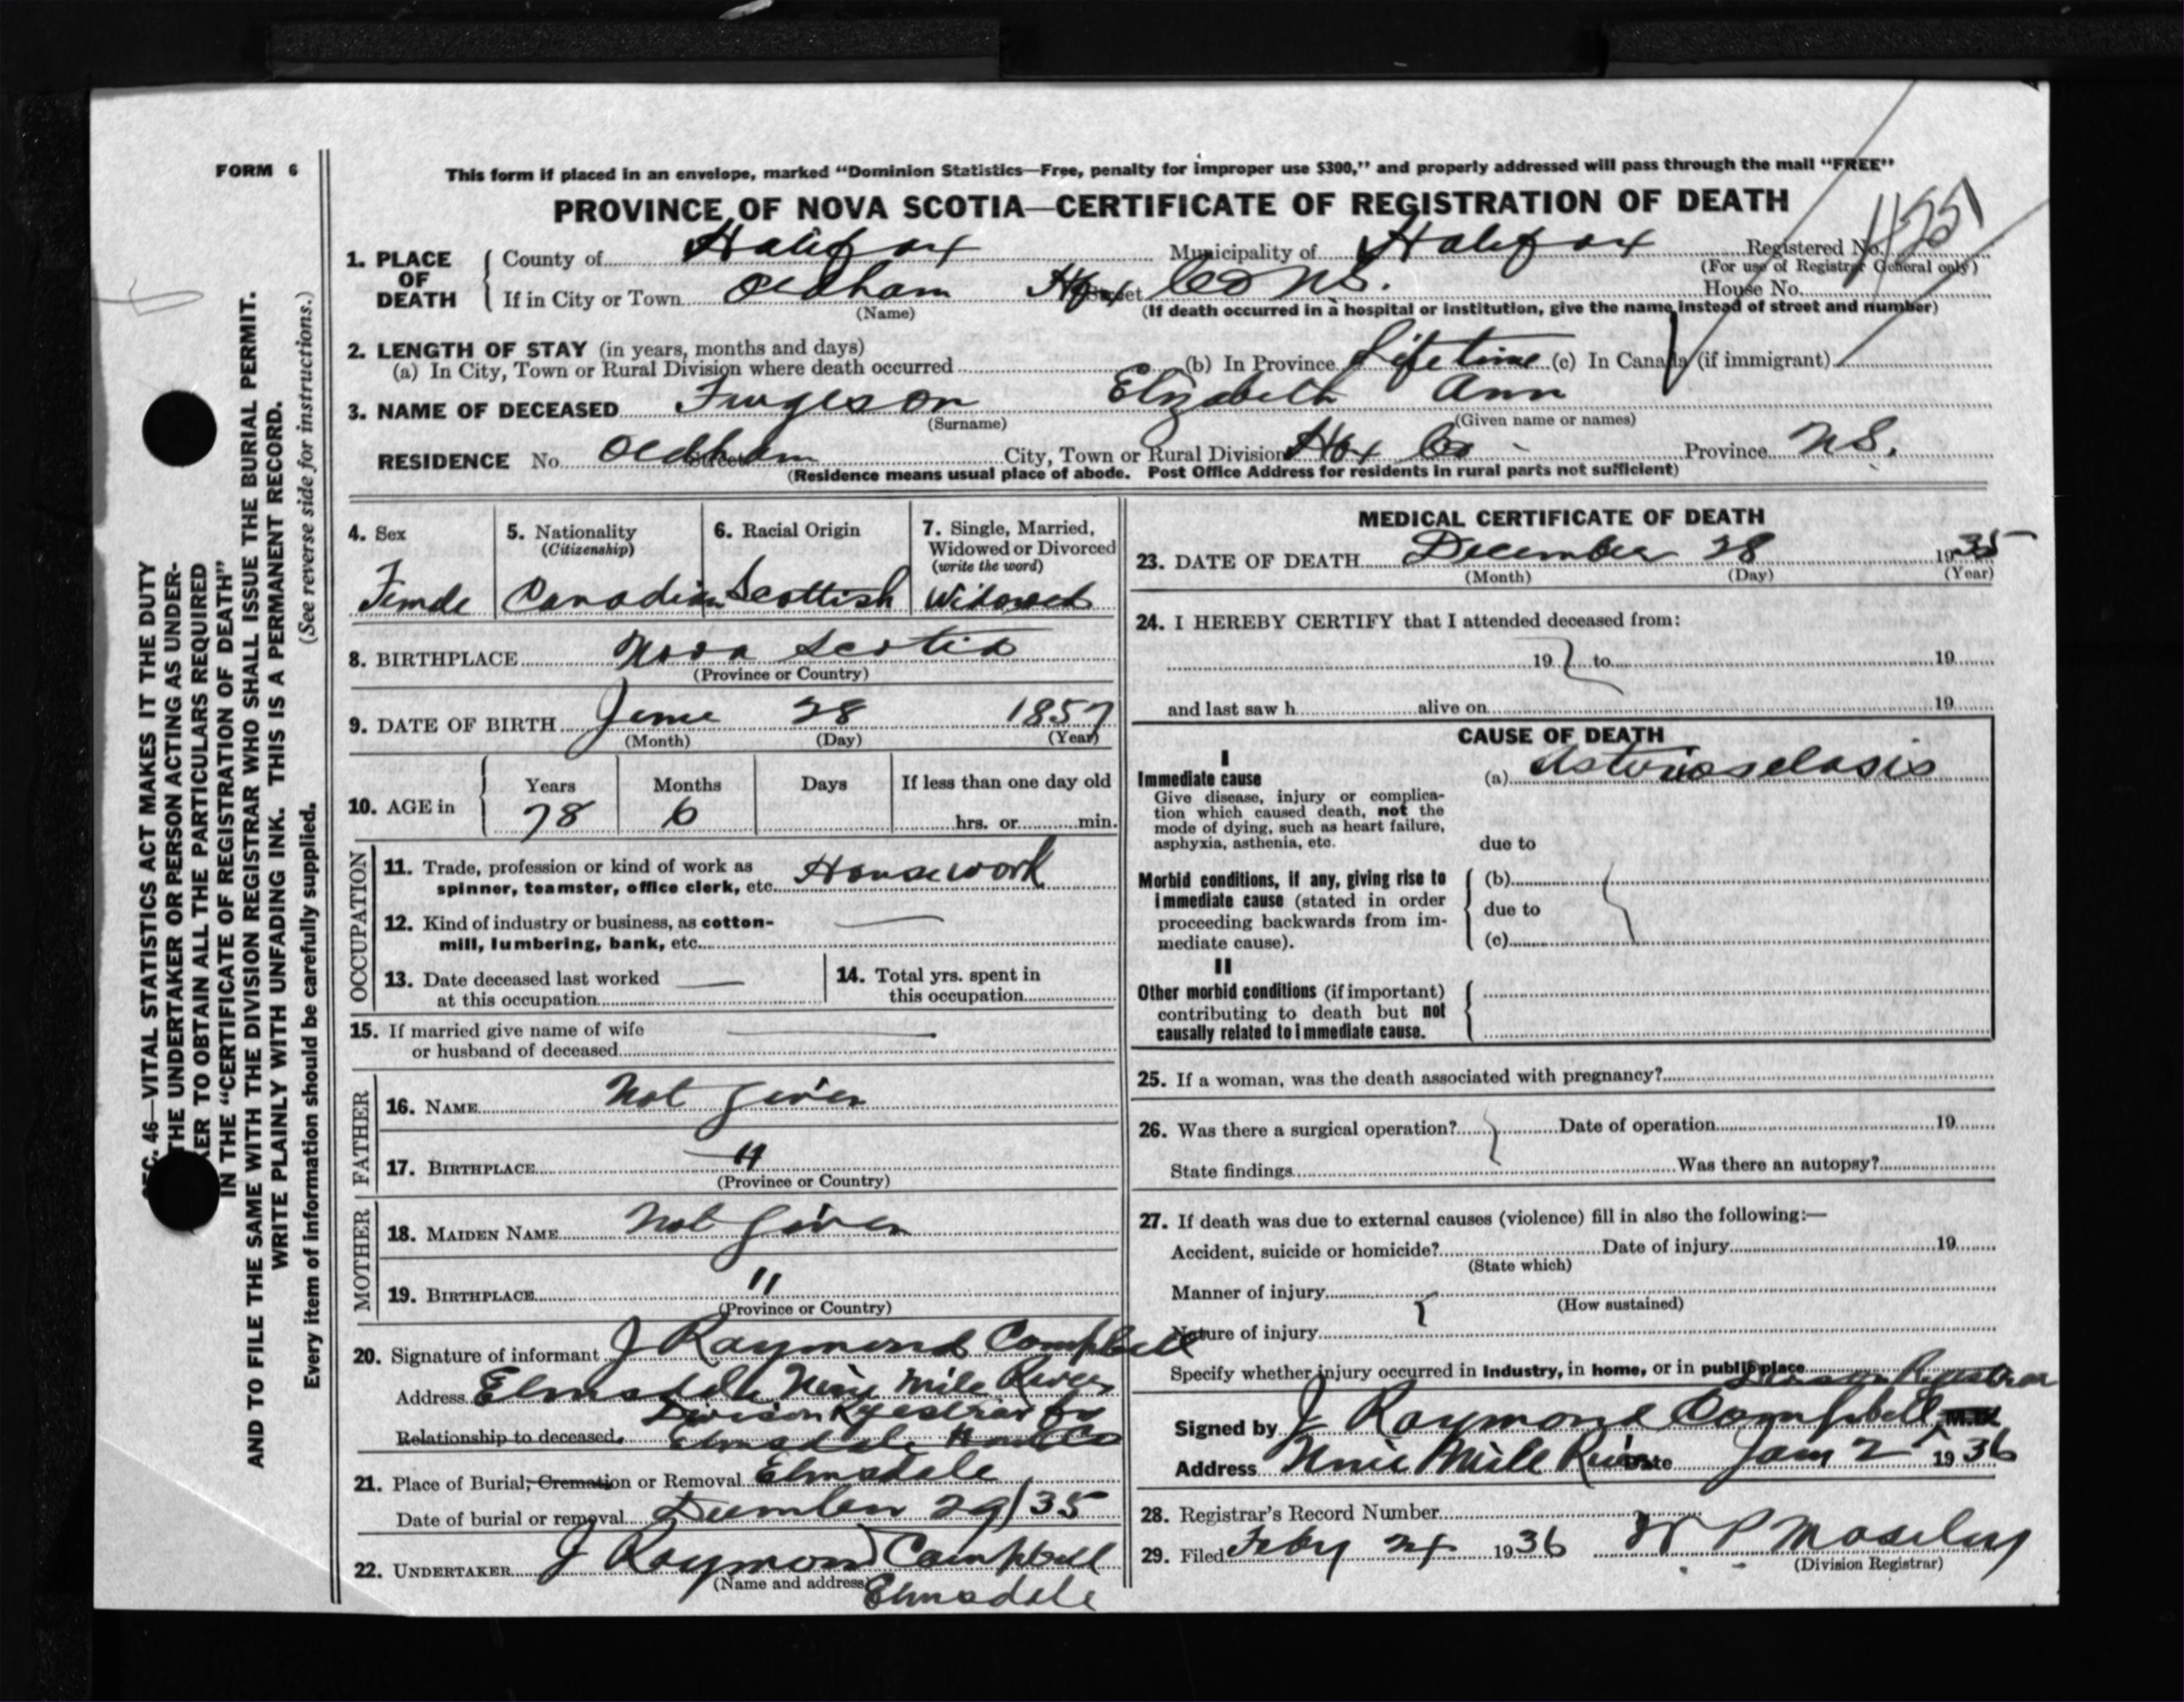 FORM 6
This form if placed in an envelope, marked "Dominion Statistics—Free, penalty for improper use $300," and properly addressed will pass through the mail "FREE"
PROVINCE OF NOVA SCOTIA—CERTIFICATE OF REGISTRATION OF DEATH
1. PLACE OF DEATH
County of Halifax Municipality of Halifax Registered No.
(For use of Registrar General only)
If in City or Town Oldham Hfx Street Co NS. House No.
(Name) (If death occurred in a hospital or institution, give the name instead of street and number)
2. LENGTH OF STAY (in years, months and days)
(a) In City, Town or Rural Division where death occurred (b) In Province Lifetime (c) In Canada (if immigrant)
3. NAME OF DECEASED Furgeson Elizabeth Ann
(Surname) (Given name or names)
RESIDENCE No. Oldham Street City, Town or Rural Division Hfx Co - Province NS.
(Residence means usual place of abode. Post Office Address for residents in rural parts not sufficient)
4. Sex
Female
5. Nationality
(Citizenship)
Canadian
6. Racial Origin
Scottish
7. Single, Married,
Widowed or Divorced
(write the word)
Widowed
8. BIRTHPLACE Nova Scotia
(Province or Country)
9. DATE OF BIRTH June 28 1857
(Month) (Day) (Year)
10. AGE in
Years Months Days If less than one day old
78 6 hrs. or min.
OCCUPATION
11. Trade, profession or kind of work as
spinner, teamster, office clerk, etc. Housework
12. Kind of industry or business, as cotton-
mill, lumbering, bank, etc. —
13. Date deceased last worked —
at this occupation
14. Total yrs. spent in
this occupation
15. If married give name of wife —
or husband of deceased
FATHER
16. NAME Not given
17. BIRTHPLACE "
(Province or Country)
MOTHER
18. MAIDEN NAME Not given
19. BIRTHPLACE "
(Province or Country)
20. Signature of informant J Raymond Campbell
Address Elmsdale Nine Mile River
Division Registrar for
Relationship to deceased. Elmsdale Hants Co
21. Place of Burial, Cremation or Removal Elmsdale
Date of burial or removal December 29/35
22. UNDERTAKER J Raymond Campbell
(Name and address) Elmsdale
MEDICAL CERTIFICATE OF DEATH
23. DATE OF DEATH December 28 1935
(Month) (Day) (Year)
24. I HEREBY CERTIFY that I attended deceased from:
19 to 19
and last saw h alive on 19
CAUSE OF DEATH
I
Immediate cause (a)
Give disease, injury or complica-
tion which caused death, not the
mode of dying, such as heart failure,
asphyxia, asthenia, etc. due to
Morbid conditions, if any, giving rise to (b)
immediate cause (stated in order due to
proceeding backwards from im-
mediate cause). (c)
II
Other morbid conditions (if important)
contributing to death but not
causally related to immediate cause.
25. If a woman, was the death associated with pregnancy?
26. Was there a surgical operation? Date of operation 19
State findings Was there an autopsy?
27. If death was due to external causes (violence) fill in also the following:—
Accident, suicide or homicide? Date of injury 19
(State which)
Manner of injury
(How sustained)
Nature of injury
Specify whether injury occurred in industry, in home, or in public place
Division Registrar
Signed by J Raymond Campbell M.D.
Address Nine Mile River Date Jan 2 1936
28. Registrar's Record Number
29. Filed Feby 24 1936 W P Moseley
(Division Registrar)
SEC. 46—VITAL STATISTICS ACT MAKES IT THE DUTY
THE UNDERTAKER OR PERSON ACTING AS UNDER-
KER TO OBTAIN ALL THE PARTICULARS REQUIRED
IN THE "CERTIFICATE OF REGISTRATION OF DEATH"
AND TO FILE THE SAME WITH THE DIVISION REGISTRAR WHO SHALL ISSUE THE BURIAL PERMIT.
WRITE PLAINLY WITH UNFADING INK. THIS IS A PERMANENT RECORD.
Every item of information should be carefully supplied. (See reverse side for instructions.)